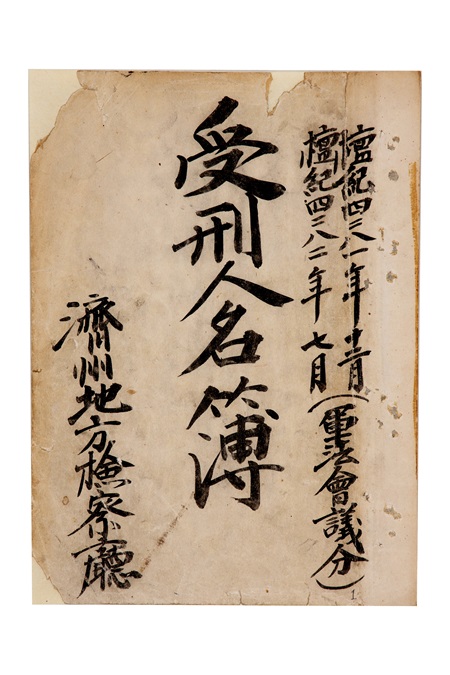 檀紀四二八一年十二月
檀紀四二八二年七月
(軍法會議分)
受刑人名簿
濟州地方檢察廳
1